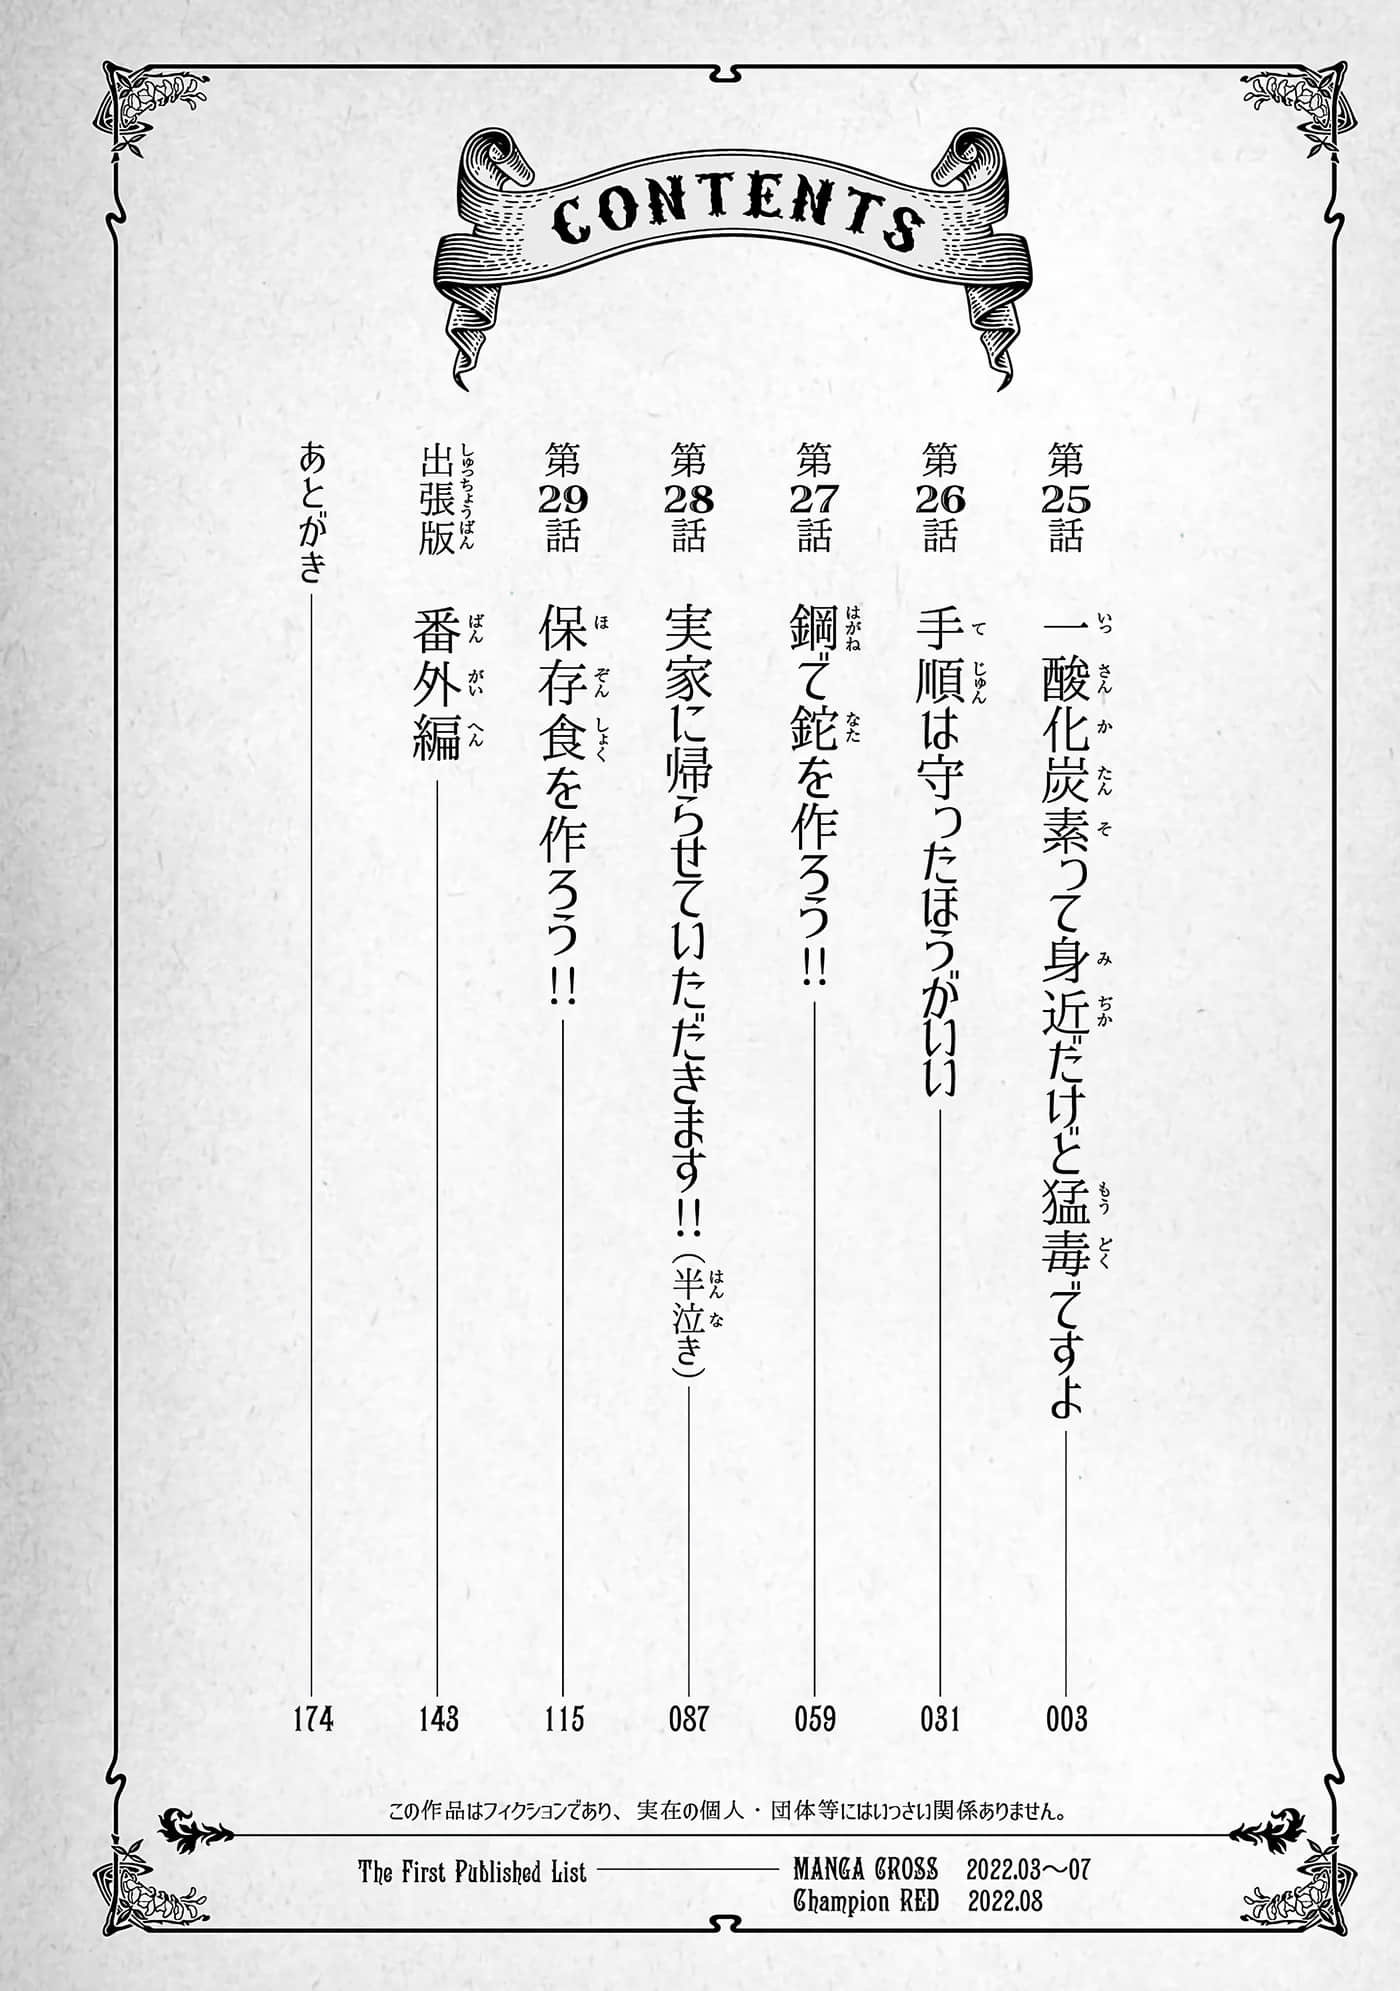 CONTENTS
第25話 一酸化炭素って身近だけど猛毒ですよ 003
いっさんかたんそ みぢか もうどく
第26話 手順は守ったほうがいい 031
てじゅん
第27話 鋼で鉈を作ろう!! 059
はがね なた
第28話 実家に帰らせていただきます!!(半泣き) 087
はんな
第29話 保存食を作ろう!! 115
ほぞんしょく
出張版 番外編 143
しゅっちょうばん ばんがいへん
あとがき 174
この作品はフィクションであり、実在の個人・団体等にはいっさい関係ありません。
The First Published List MANGA CROSS 2022.03〜07
Champion RED 2022.08